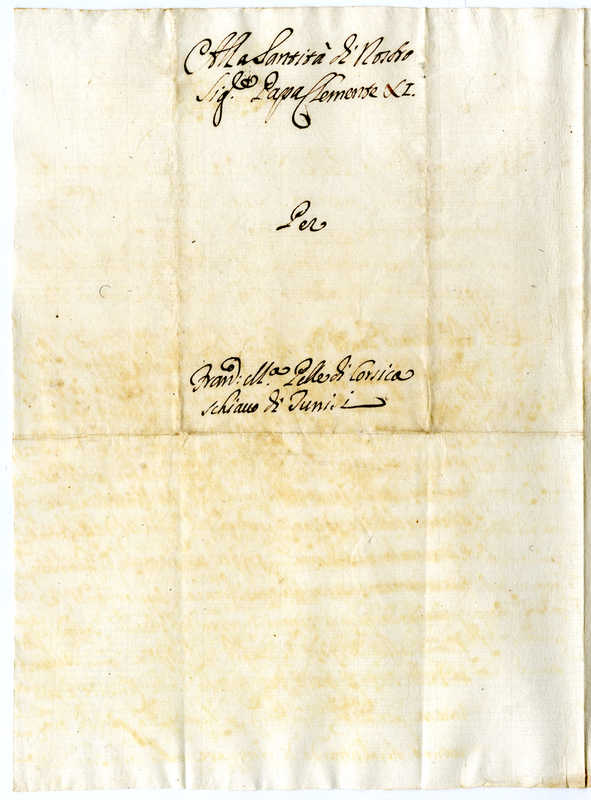 Alla Santità di Nostro
Sig.re Papa Clemente XI.
Per
Fran.co M.a Pelle di Corsica
schiavo di Tunisi